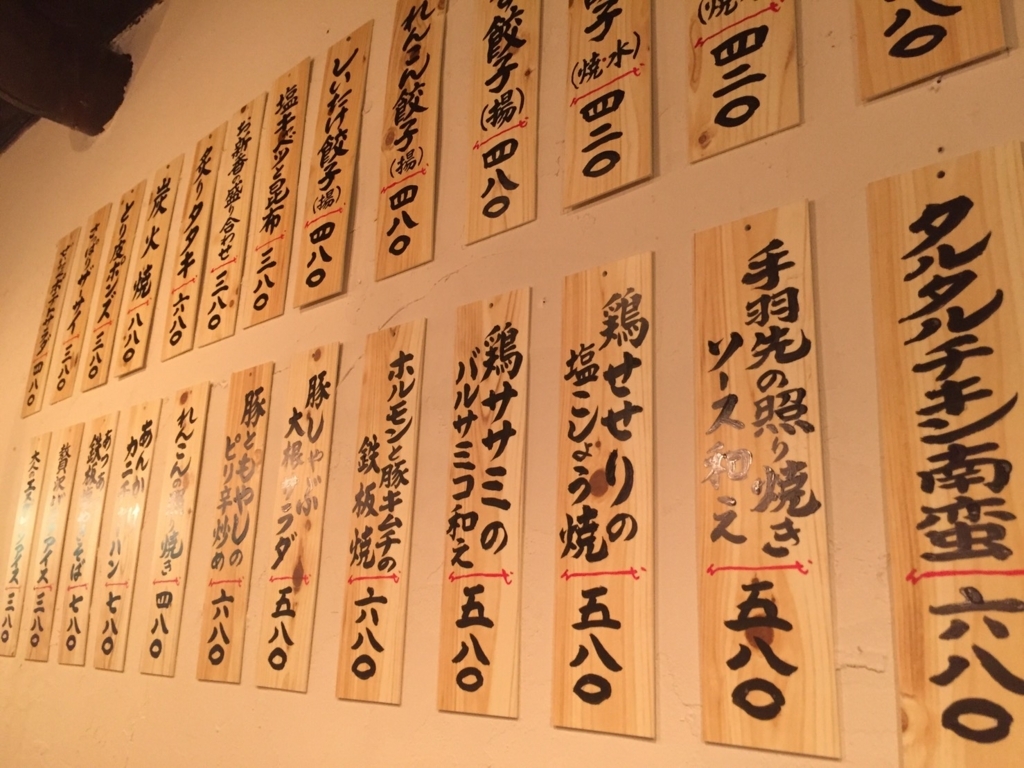 八〇
(焼
四二〇
子
(焼・水)
四二〇
餃子
(揚)
四八〇
れんこん餃子
(揚)
四八〇
しいたけ餃子
(揚)
四八〇
塩キャベツと昆布
三八〇
お新香の盛り合わせ
三八〇
炙りタタキ
六八〇
炭火焼
八八〇
とり皮ポンズ
三八〇
ザーサイ
三八〇
四八〇
タルタルチキン南蛮
六八〇
手羽先の照り焼き
ソース和え
五八〇
鶏せせりの
塩こしょう焼
五八〇
鶏ササミの
バルサミコ和え
五八〇
ホルモンと豚キムチの
鉄板焼
六八〇
豚しゃぶ
大根サラダ
五八〇
豚ともやしの
ピリ辛炒め
六八〇
れんこんの照り焼き
四八〇
あんかけ
カニチャーハン
七八〇
あつあつ
鉄板焼そば
七八〇
アイス
三八〇
アイス
三八〇